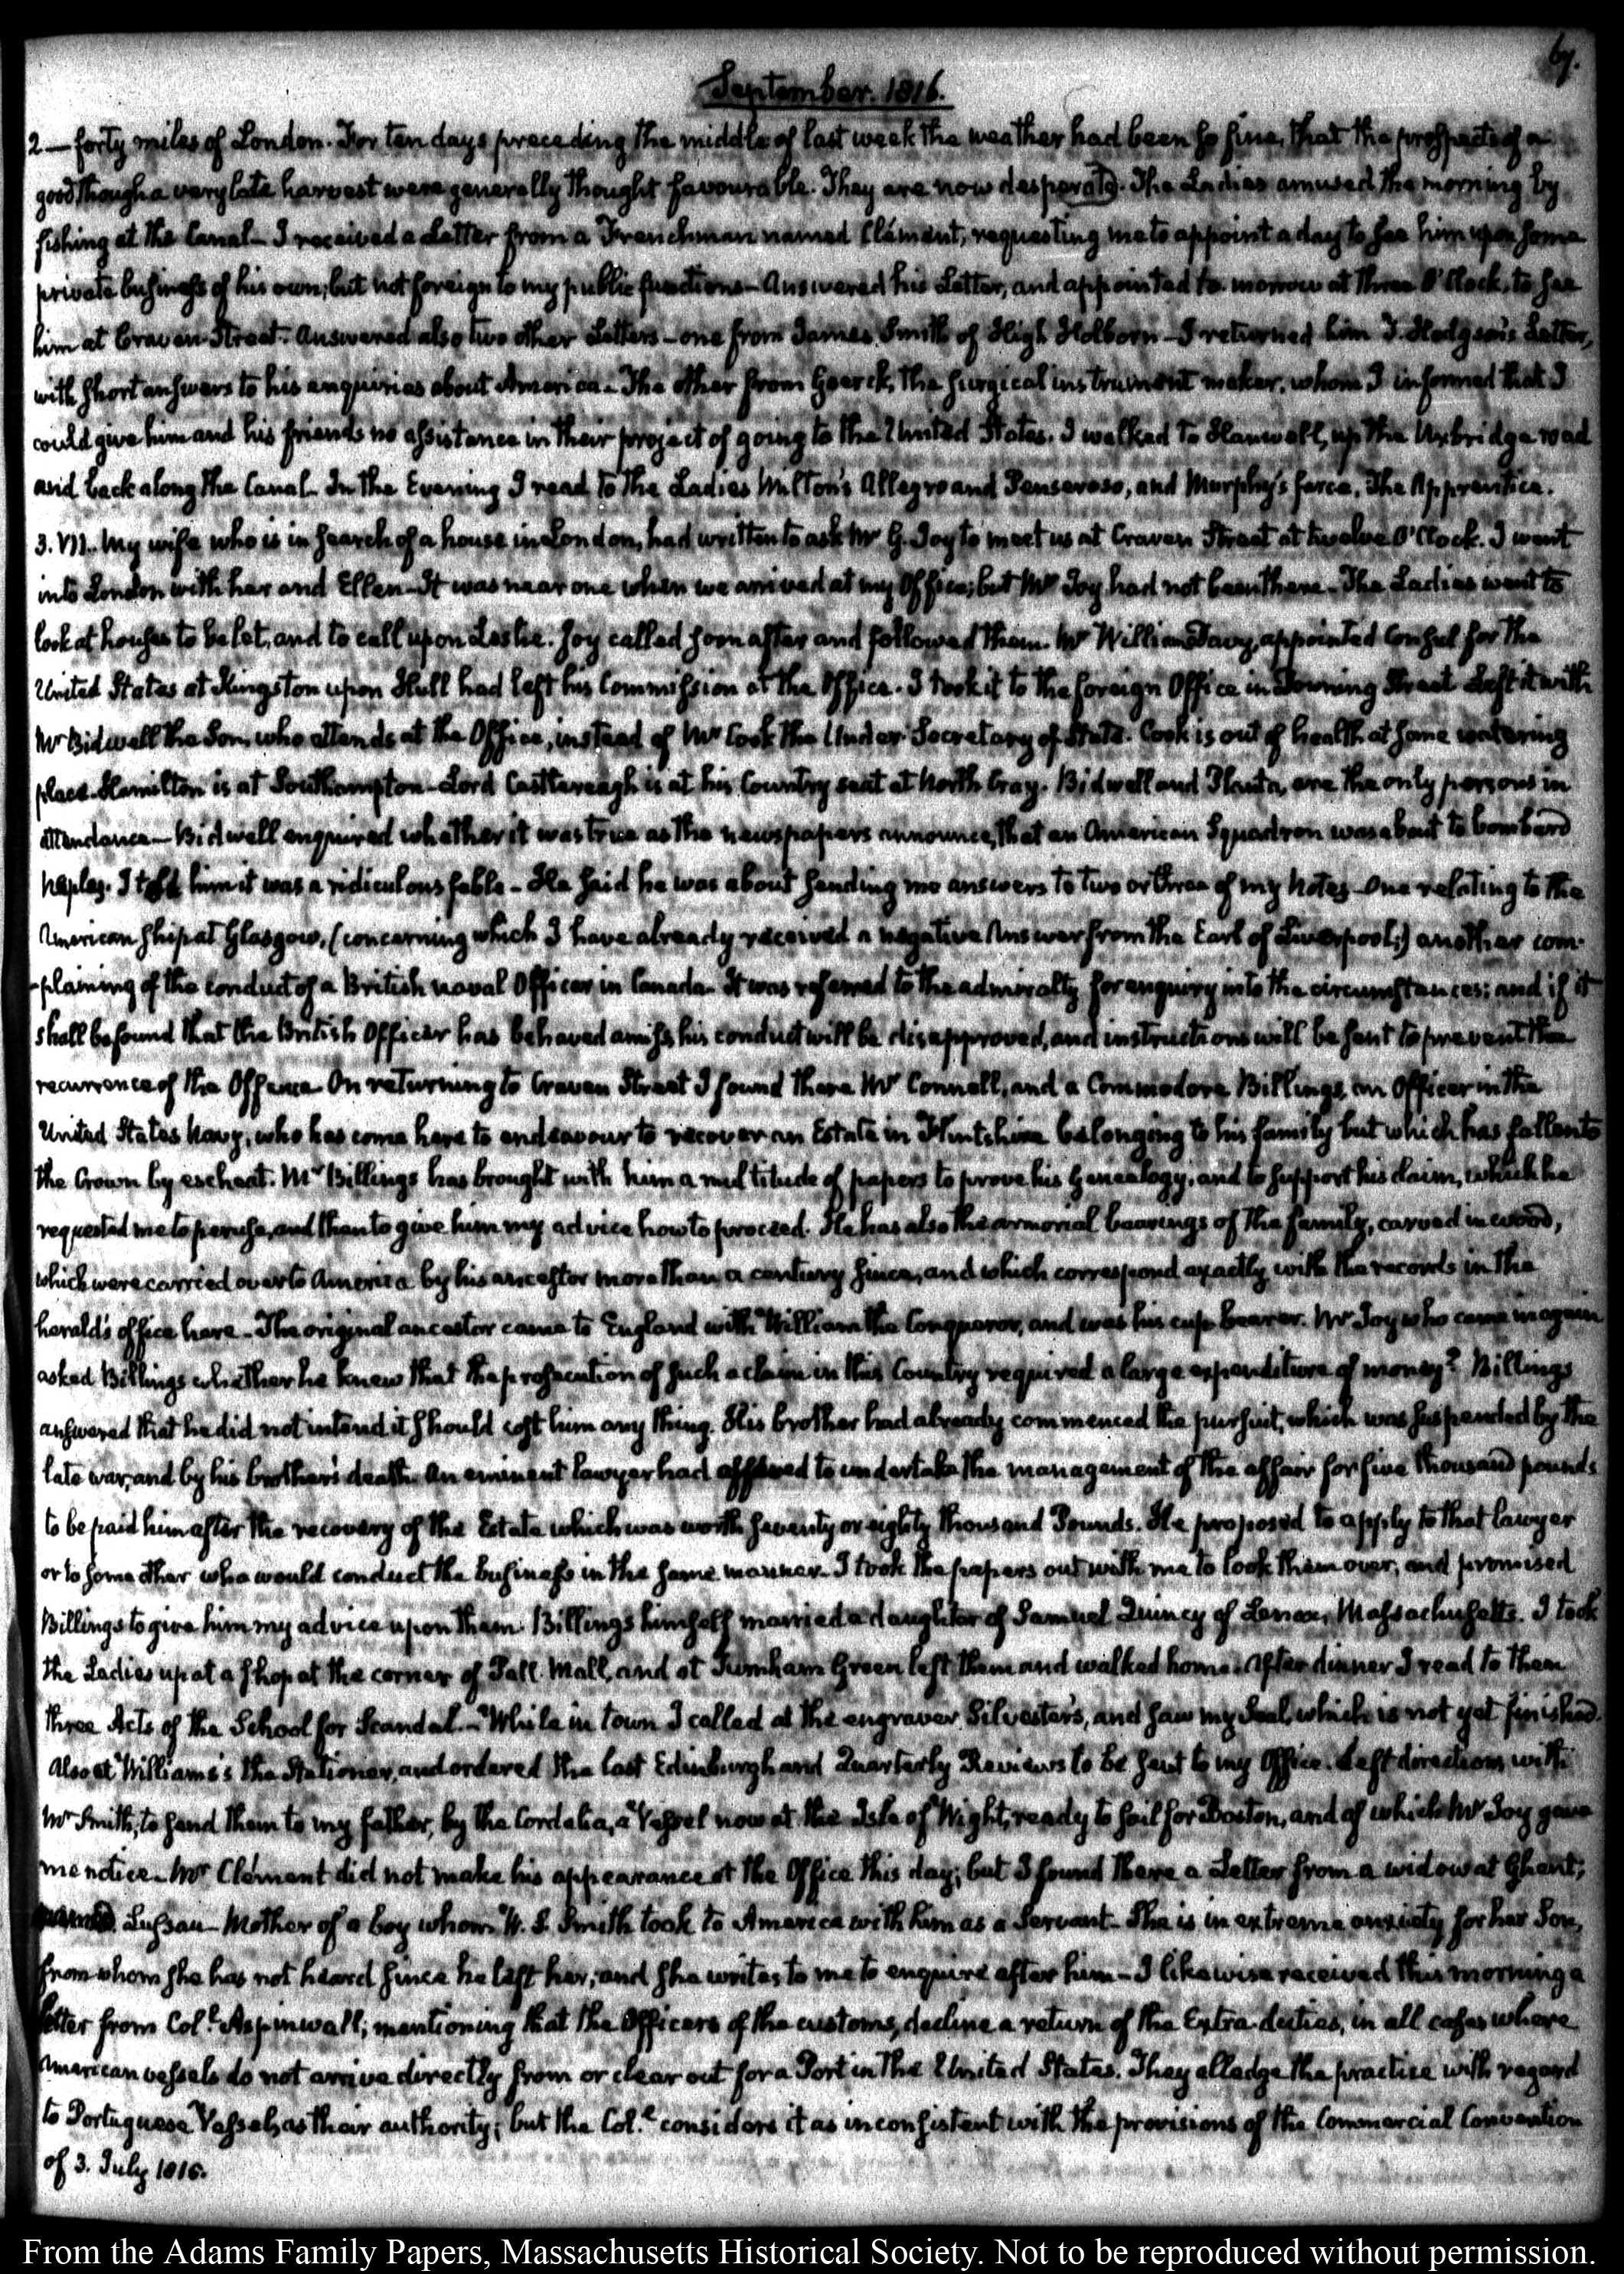 67.
September. 1816.
2 — forty miles of London. For ten days preceding the middle of last week the weather had been so fine, that the prospects of a
good though a very late harvest were generally thought favourable. They are now desperate. The Ladies amused the morning by
fishing at the Canal — I received a Letter from a Frenchman named Clément, requesting me to appoint a day to see him upon some
private business of his own; but not foreign to my public functions — Answered his Letter, and appointed to-morrow at three O'Clock, to see
him at Craven-Street. Answered also two other Letters — one from James Smith of High Holborn — I returned him T. Hodgson's Letter,
with short answers to his enquiries about America — The other from Goerck, the surgical instrument maker, whom I informed that I
could give him and his friends no assistance in their project of going to the United States. I walked to Hanwell, up the Uxbridge road
and back along the Canal. In the Evening I read to the Ladies Milton's Allegro and Penseroso, and Murphy's farce, The Apprentice.
3. VII.. My wife who is in search of a house in London, had written to ask Mr G. Joy to meet us at Craven Street at twelve O'Clock. I went
into London with her and Ellen — It was near one when we arrived at my Office; but Mr Joy had not been there — The Ladies went to
look at houses to be let, and to call upon Leslie. Joy called soon after and followed them. Mr William Davy, appointed Consul for the
United States at Kingston upon Hull had left his Commission at the Office. I took it to the foreign Office in Downing Street Left it with
Mr Bidwell the Son, who attends at the Office, instead of Mr Cook the Under-Secretary of State. Cook is out of health at some watering
place. Hamilton is at Southampton — Lord Castlereagh is at his Country seat at North Cray. Bidwell and Planta, are the only persons in
attendance — Bidwell enquired whether it was true as the newspapers announce, that an American Squadron was about to bombard
Naples. I told him it was a ridiculous fable — He said he was about sending me answers to two or three of my Notes — One relating to the
American ship at Glasgow, (concerning which I have already received a negative Answer from the Earl of Liverpool;) another com-
-plaining of the conduct of a British naval Officer in Canada — It was referred to the admiralty for enquiry into the circumstances; and if it
shall be found that the British Officer has behaved amiss, his conduct will be disapproved, and instructions will be sent to prevent the
recurrence of the Offence — On returning to Craven Street I found there Mr Connell, and a Commodore Billings, an Officer in the
United States Navy, who has come here to endeavour to recover an Estate in Flintshire belonging to his family but which has fallen to
the Crown by escheat. Mr Billings has brought with him a multitude of papers to prove his Genealogy, and to support his claim, which he
requested me to peruse, and then to give him my advice how to proceed. He has also the armorial bearings of the family, carved in wood,
which were carried over to America by his ancestor more than a century since, and which correspond exactly with the records in the
herald's office here — The original ancestor came to England with William the Conqueror, and was his cup-bearer. Mr Joy who came in again
asked Billings whether he knew that the prosecution of such a claim in this Country required a large expenditure of money? Billings
answered that he did not intend it should cost him any thing. His brother had already commenced the pursuit, which was suspended by the
late war, and by his brother's death. An eminent lawyer had offered to undertake the management of the affair for five thousand pounds
to be paid him after the recovery of the Estate which was worth seventy or eighty thousand Pounds. He proposed to apply to that lawyer
or to some other who would conduct the business in the same manner. I took the papers out with me to look them over, and promised
Billings to give him my advice upon them. Billings himself married a daughter of Samuel Quincy of Lenox, Massachusetts. I took
the Ladies up at a shop at the corner of Pall-Mall, and at Turnham Green left them and walked home. After dinner I read to them
three Acts of the School for Scandal — While in town I called at the engraver Silvester's, and saw my Seal, which is not yet finished.
Also at Williams's the Stationer, and ordered the last Edinburgh and Quarterly Reviews to be sent to my Office. Left directions with
Mr Smith, to send them to my father, by the Cordelia, a Vessel now at the Isle of Wight, ready to sail for Boston, and of which Mr Joy gave
me notice — Mr Clément did not make his appearance at the Office this day; but I found there a Letter from a widow at Ghent;
named Lussau — Mother of a boy whom W. S. Smith took to America with him as a Servant — She is in extreme anxiety for her Son,
from whom she has not heard since he left her, and she writes to me to enquire after him — I likewise received this morning a
letter from Coll. Aspinwall; mentioning that the Officers of the customs, decline a return of the Extra-duties, in all cases where
American vessels do not arrive directly from or clear out for a Port in the United States. They alledge the practice with regard
to Portuguese Vessels, as their authority; but the Coll. considers it as inconsistent with the provisions of the Commercial Convention
of 3. July 1815.
From the Adams Family Papers, Massachusetts Historical Society. Not to be reproduced without permission.